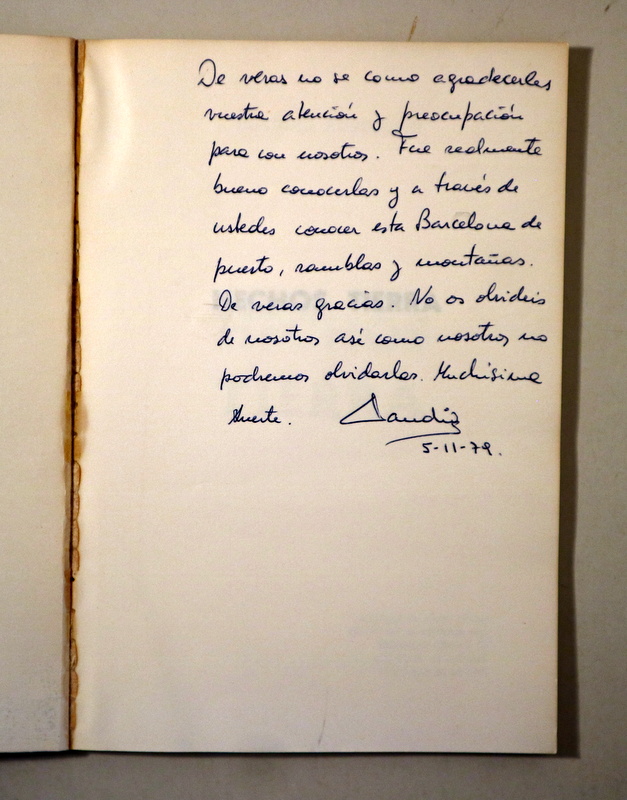 De veras no se como agradecerles
vuestra atención y preocupación
para con nosotros. Fue realmente
bueno conocerlas y a través de
ustedes conocer esta Barcelona de
puerto, ramblas y montañas.
De veras gracias. No os olvideis
de nosotros asé como nosotros no
podremos olvidarlas. Muchísima
suerte.
5-11-79.